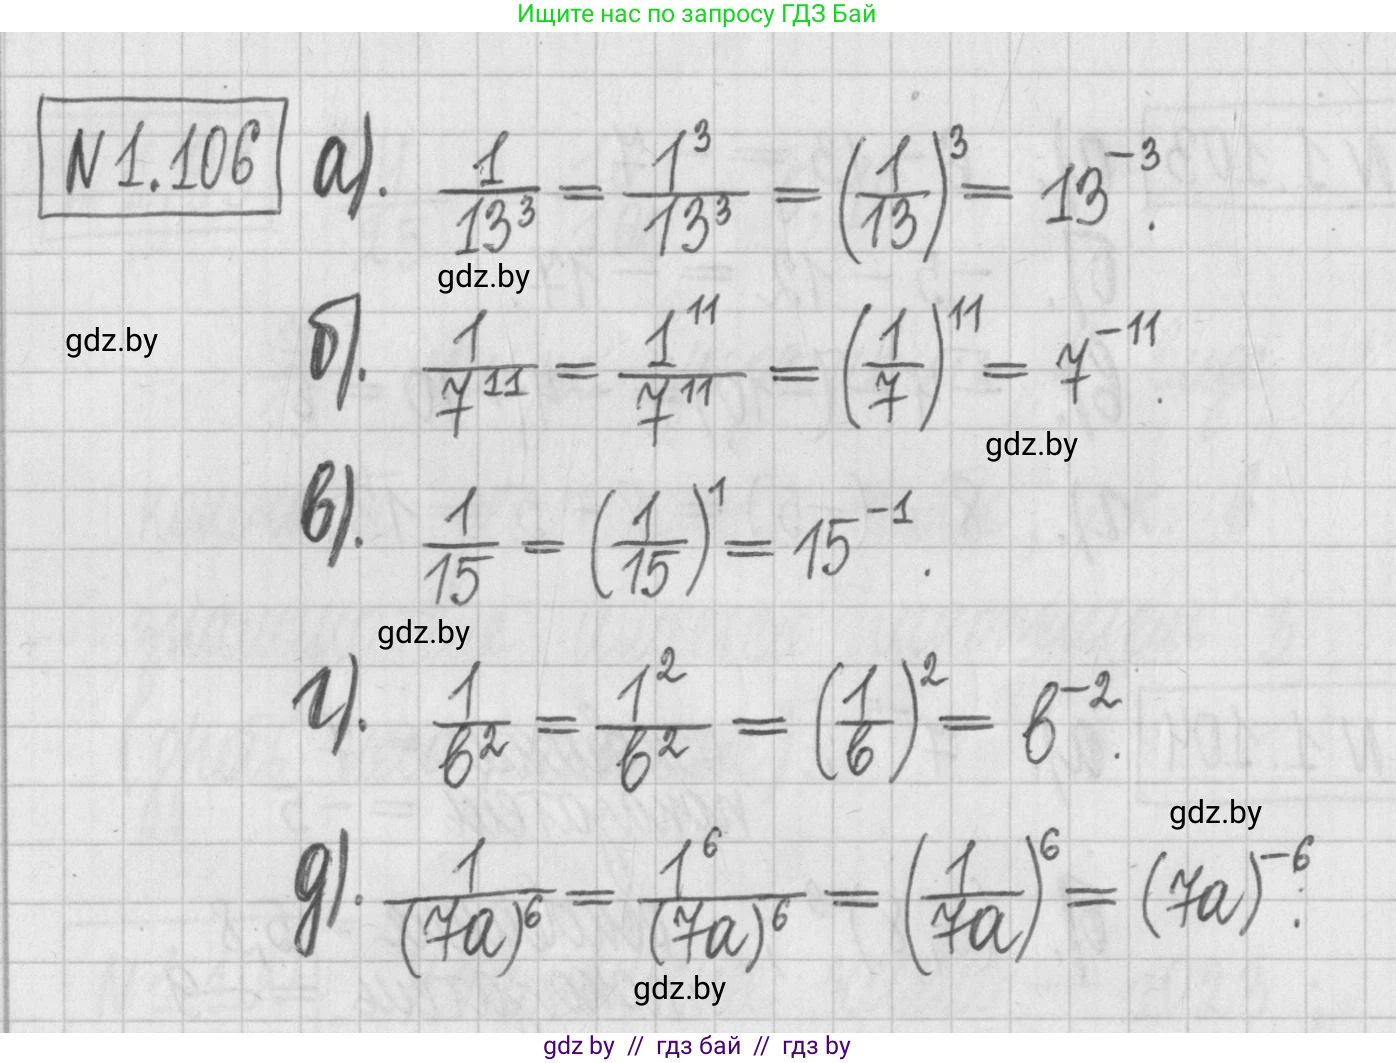 Ищите нас по запросу ГДЗ Бай
N 1.106 а). 1/13³ = 1³/13³ = (1/13)³ = 13⁻³.
gdz.by
б). 1/7¹¹ = 1¹¹/7¹¹ = (1/7)¹¹ = 7⁻¹¹.
gdz.by
gdz.by
в). 1/15 = (1/15)¹ = 15⁻¹.
gdz.by
г). 1/b² = 1²/b² = (1/b)² = b⁻².
gdz.by
д). 1/(7a)⁶ = 1⁶/(7a)⁶ = (1/7a)⁶ = (7a)⁻⁶.
gdz.by
gdz by // гдз бай // гдз by